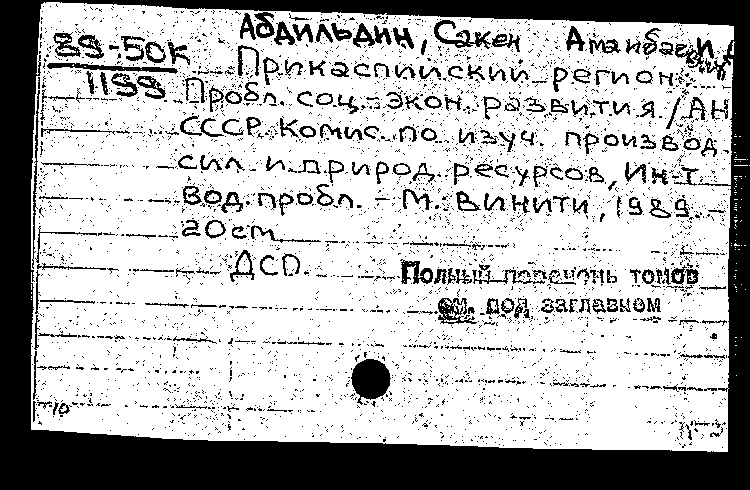 89-50к
1198
Абдильдин, Сакен
Прикаспийский регион:
Пробл. соц.-экон. развития / АН
СССР. Комис. по изуч. производ.
сил и природ. ресурсов, Ин-т
вод. пробл. - М.: ВИНИТИ, 1989. -
20 см.
ДСП.
Полный перечень томов
см. под заглавном
10